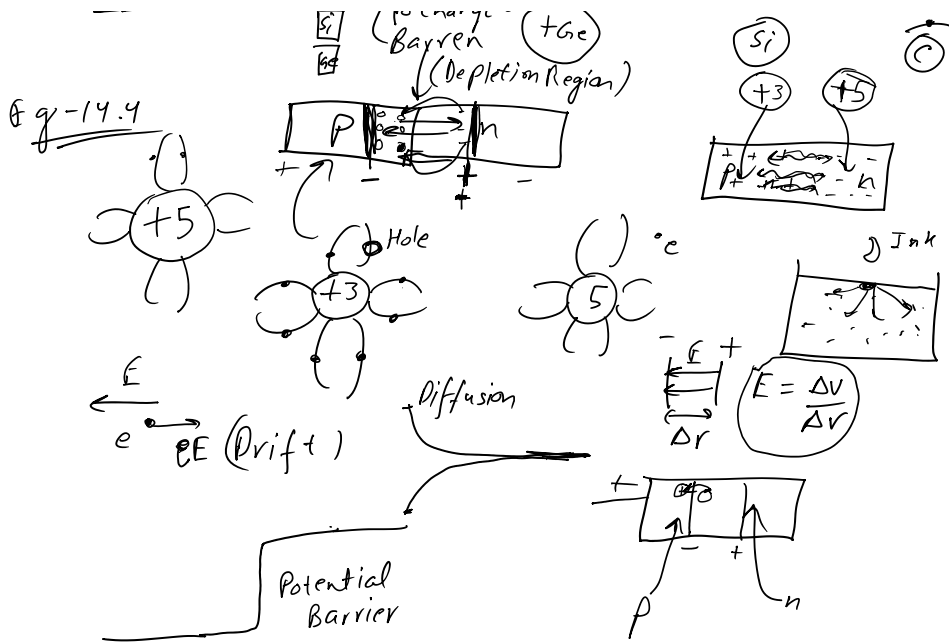 Si
Ge
Barren
+Ge
(Depletion Region)
Si
C
+3
+5
Eg-14.4
P
n
+
-
+
-
+
+ +
- -
P+
n
+5
Hole
+3
5
e
Ink
E
e
E (Drift)
Diffusion
-
E
+
Δr
E = Δv
Δr
+
-
+
P
n
Potential
Barrier